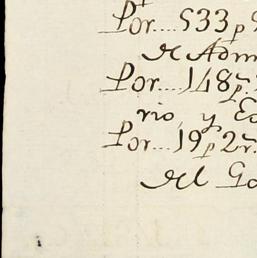 Por....533p
de Adm
Por....148p.
rio, y
Por...19p2r.
del Go